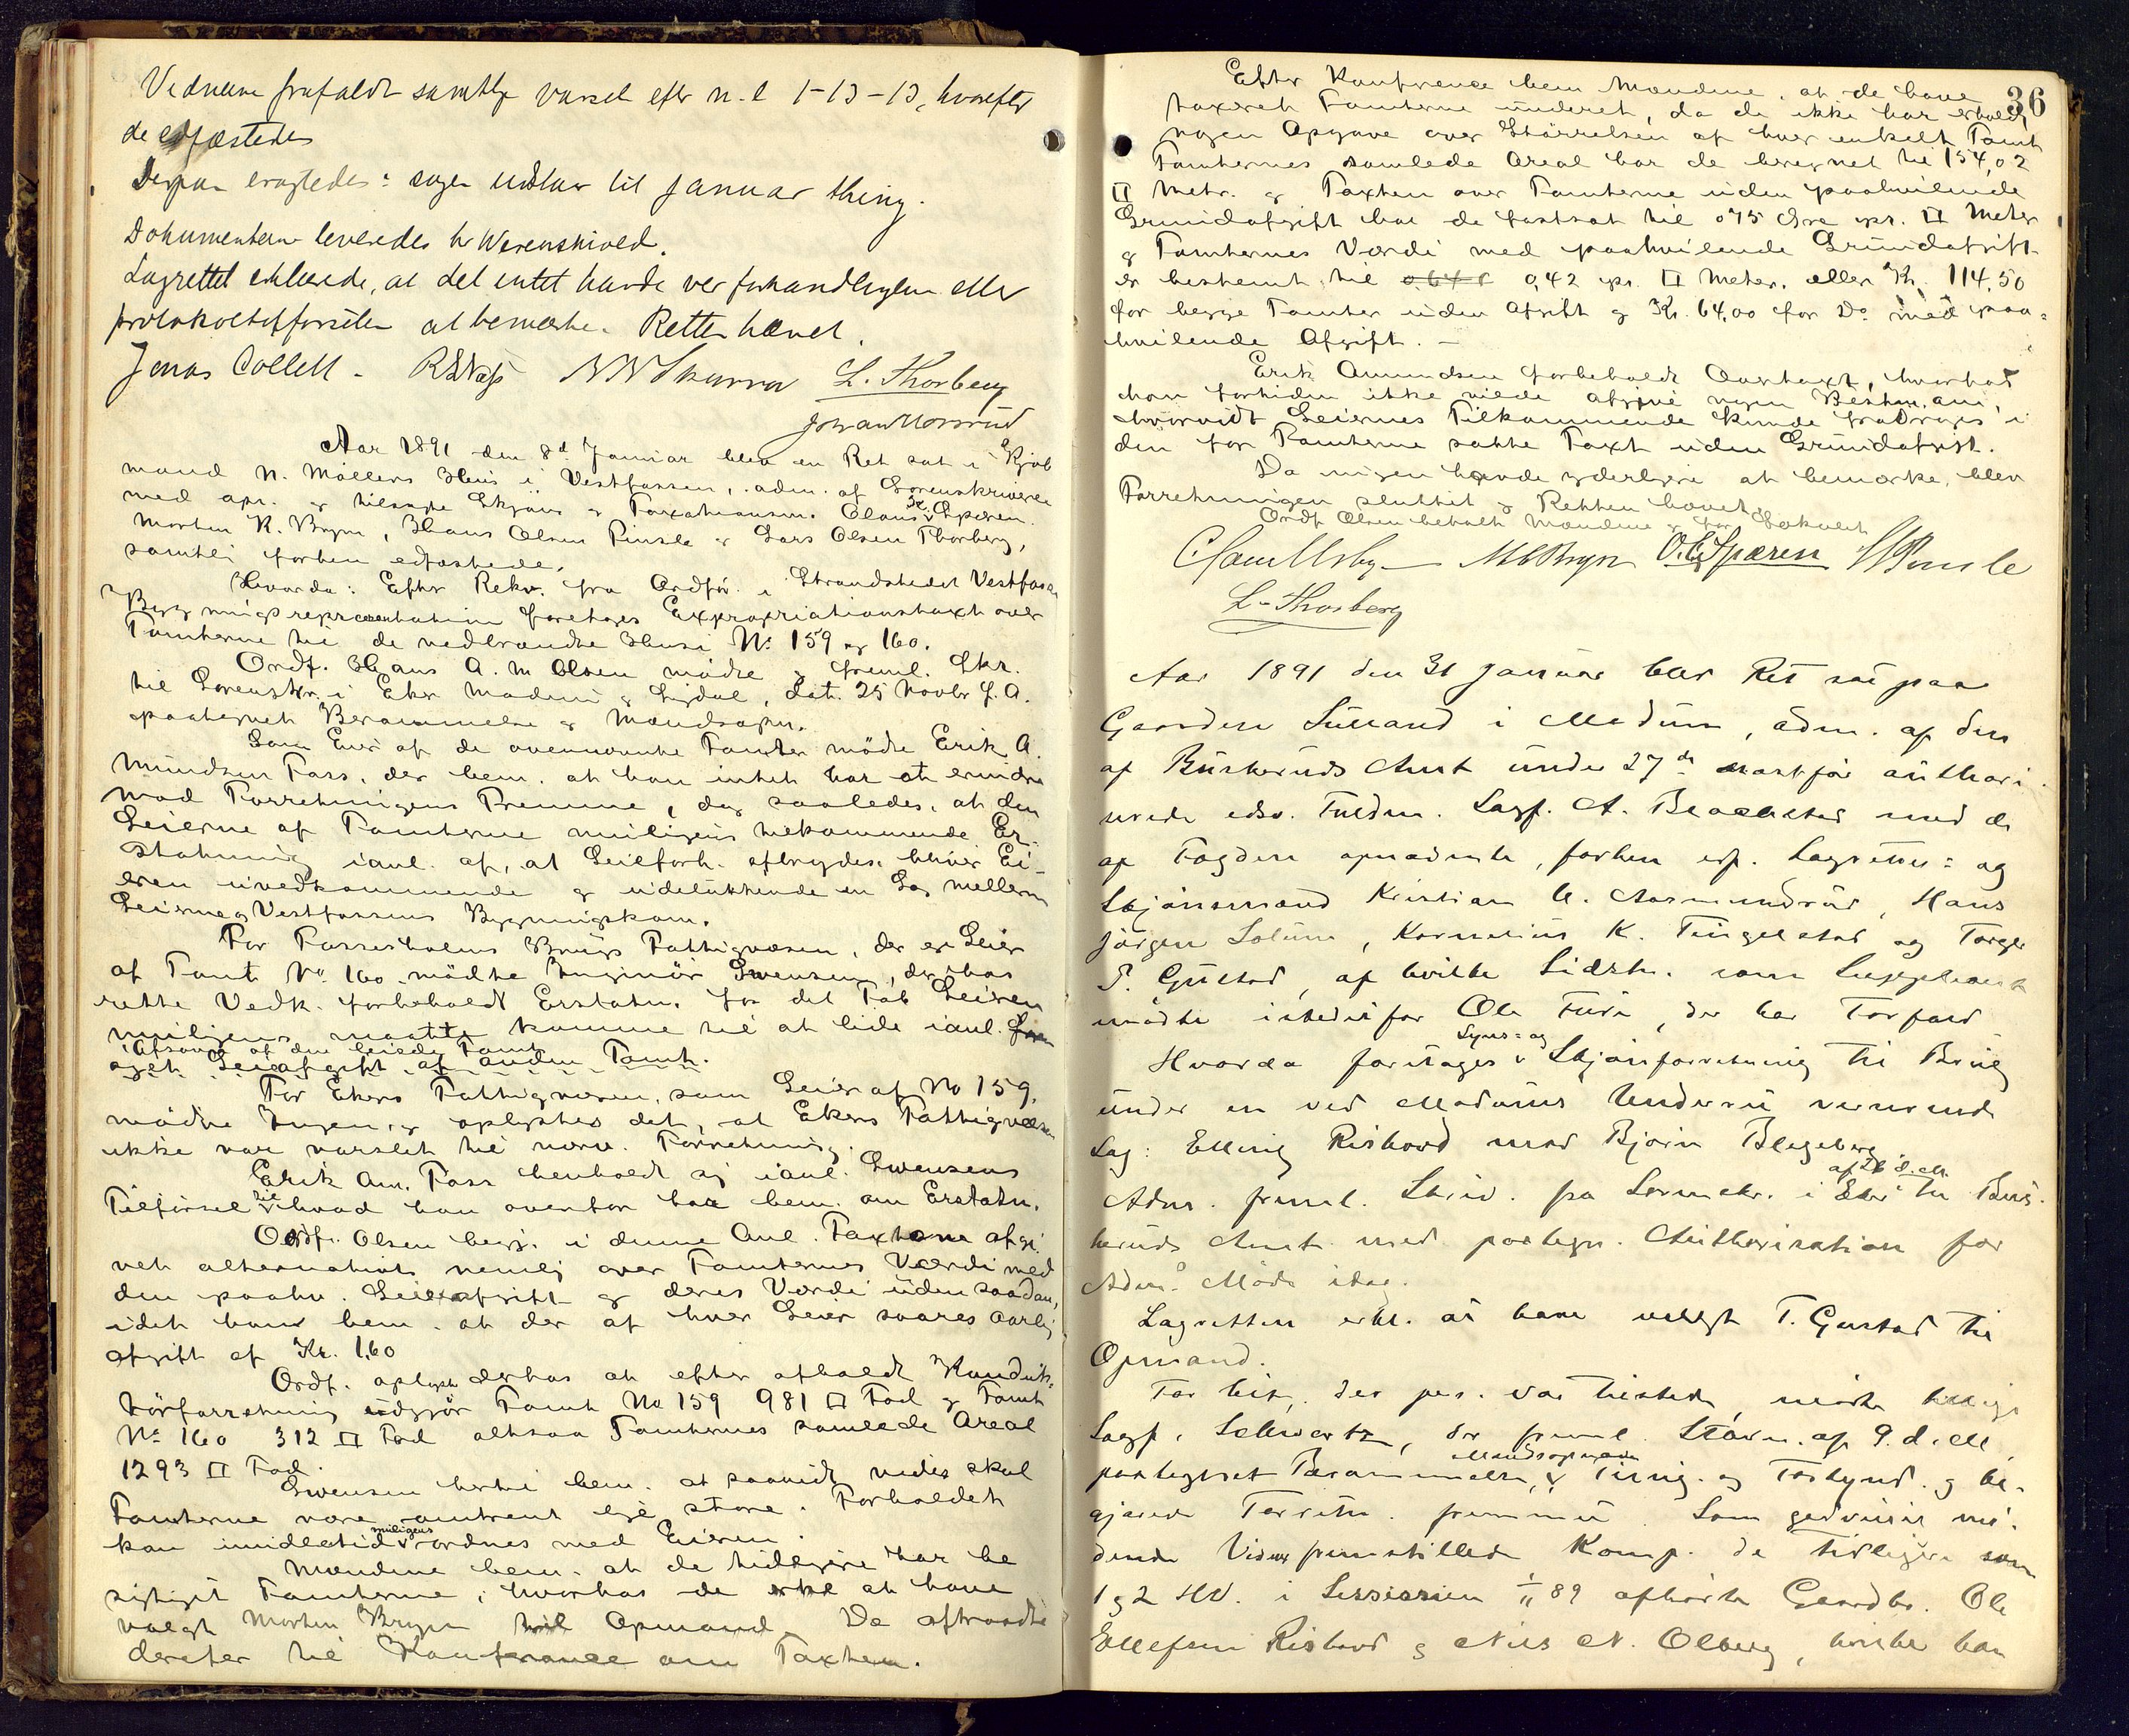 Vidnerne frafaldt samtlige varsel efter N. L. 1-13-13, hvorefter
de edfæstedes
Derpaa eragtedes: sagen udstaar til Januar thing.
Dokumenterne leveredes hr Werenskiold.
Lagrettet erklærede, at det intet havde ved forhandlingen eller
protokoltilførselen at bemærke. Retten hævet.
Jonas Collett - N N Skurva L. Thorberg
Johan Mossrud
Aar 1891 den 8d Januar blev en Ret sat i Kjøb
mand N. Möllers Huus i Vestfossen, adm. af Sorenskriveren
med opn. og tilsagte Skjöns og Taxationsm. Olaus Chr. Sparen
Morten K. Bryn, Hans Olsen Pinsle og Lars Olsen Thorberg,
samtl. forhen edfæstede.
Hvorda: Efter Rekv. fra Ordför. i Strandstedet Vestfossens
Bygningsrepræsentation foretages Expropriationstaxt over
Tomterne til de nedbrændte Huse No 159 og 160.
Ordf. Hans A. M. Olsen mödte og freml. Skr.
til Sorenskr. i Eker Modum og Sigdal, dat. 25 Novbr f. A.
paategnet Berammelse og Mandsopn.
Som Eier af de ovennævnte Tomter mödte Erik A.
mundsen Foss, der bem. at han intet har at erindre
mod Forretningens Fremme, dog saaledes, at den
Leierne af Tomterne muligens tilkommende Er-
statning ianl. af, at Leieforh. afbrydes bliver Ei-
eren uvedkommende og udelukkende en Sag mellem
Leierne og Vestfossens Bygningskom.
For Fossesholms Brugs Fattigvæsen, der er Leier
af Tomt No 160 mödte Ingeniör Svensen, der paa
rette Vedk. forbeholdt Erstatn. for det Tab Leieren
muligens maatte komme til at lide ianl.
Afsavn af den leiede Tomt
öget Leieafgift af anden Tomt.
For Ekers Fattigvæsen, som Leier af No 159,
mödte Ingen og oplystes det, at Ekers Fattigvæsen
ikke var varslet til nærv. Forretning.
Erik Am. Foss henholdt sig ianl. Svensens
Tilförsel til hvad han ovenfor har bem. om Erstatn.
Ordf. Olsen begj. i denne Anl. Taxterne afgi-
vet alternativt nemlig over Tomternes Værdi med
den paahv. Leieafgift og deres Værdi uden saadan,
idet han bem. at der af hver Leier svares aarlig
afgift af Kr. 1,60
Ordf. oplyste derhos at efter afholdt Konduk-
törforretning udgjör Tomt No 159 981 □ Fod og Tomt
No 160 312 □ Fod altsaa Tomternes samlede Areal
1293 □ Fod.
Svensen hertil bem. at saavidt vides skal
Tomterne være omtrent lige store. Forholdet
kan imidlertid muligens ordnes med Eieren.
Mændene bem. at de tidligere har be
sigtiget Tomterne, hvorhos de erkl at have
valgt Morten Bryn til Opmand. De aftraadte
derefter til Konferance om Taxten.
36
Efter Konference bem Mændene, at de have
taxeret Tomterne underet, da de ikke har erholdt
nogen Opgave over Störrelsen af hver enkelt Tomt
Tomternes samlede Areal har de beregnet til 154,02
□ Metr. og Taxten over Tomterne uden paahvilende
Grundafgift har de fastsat til 075 Öre pr. □ Meter
og Tomternes Værdi med paahvilende Grundafgift
er bestemt til 0,42 pr. □ Meter. eller Kr. 114,50
for begge Tomter uden Afgift og Kr. 64,00 for Do med paa-
hvilende Afgift. -
Erik Amundsen forbeholdt Overtaxt, hvorhos
han fortiden ikke vilde afgive nogen Bestem. om,
hvorvidt Leiernes Tilkommende kunde fradrages i
den for Tomterne satte Taxt uden Grundafgift.
Da ingen havde yderligere at bemærke, blev
Forretningen sluttet og Retten hævet.
Ordf Olsen betalte Mændene og for Lokalet
M K Bryn O. C. Sparen H Pinsle
L. Thorberg
Aar 1891 den 31 Januar blev Ret sat paa
Gaarden Sülland i Modum, adm. af den
af Buskeruds Amt under 27de næstfør authori-
serede edsv. Fuldm. Sagf. A. Braaestad med de
af Fogden opnævnte, forhen edf. Lagrettes- og
Skjönsmænd Kristian A. Aasmundrud, Hans
Jörgen Solum, Kornelius K. Tingelstad og Torger
T. Gustad, af hvilke Sidstn. som Suppleant
mödte istedetfor Ole Furu, der har Forfald
Hvorda foretages Syns- og Skjönforretning til Brug
under en ved Modums Underret verserende
Sag: Elling Risbood mod Bjorn Blegeberg
Adm. freml. Skriv. fra Sorenskr. i Eker af 26 d. M. til Bus-
keruds Amt med paategn. Authorisation for
Adm. Möde idag.
Lagretten erkl. at have valgt T. Gustad til
Opmand.
For Cit., der pers. var tilstede, mödte
Sagf. Schwartz, der freml. Stævn. af 9. d. M.
paategnet Berammelse, Mandsopnævn. og Forkynd. og be-
gjærede Forretn. fremmet. Som godvilligt mö-
dende Vidner fremstillede Komp. de tidligere som
1 og 2 HV. i Sessionen 1/11 89 afhörte Gaardbr. Ole
Ellefsen Risbood og Nils N. Olberg, hvilke han